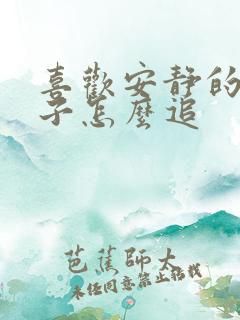 喜歡安靜的
子怎麼追
芭蕉師太
未經同意禁止搭載